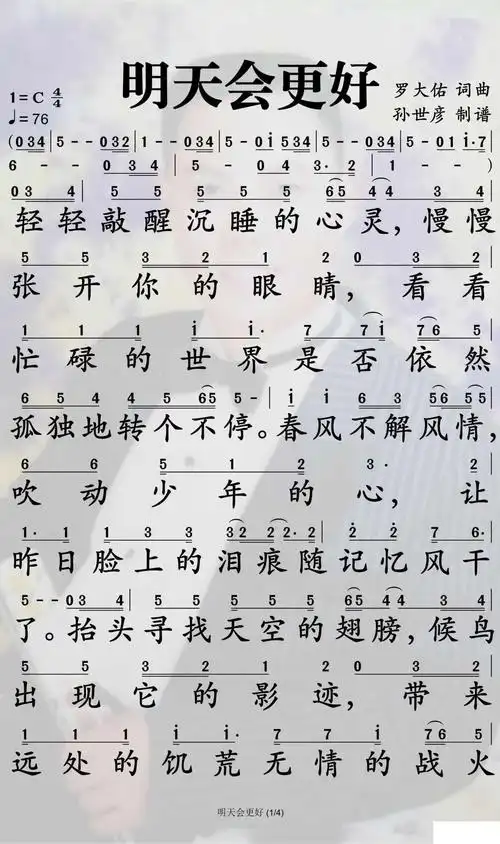 明天会更好
1=C 4/4
♩=76
罗大佑 词曲
孙世彦 制谱
(034|5--032|1--034|5--0i534|5--0i·7|
6--034|5-045 3·2|1--)
034|5555565443 4
轻轻敲醒沉睡的心灵，慢慢
5532120 3 2
张开你的眼睛，看看
111ii·77i765
忙碌的世界是否依然
65454565 5-|ii63565 5
孤独地转个不停。春风不解风情，
665123·2
吹动少年的心，让
1·11333222·22·76·
昨日脸上的泪痕随记忆风干
5--034|5555565443 4
了。抬头寻找天空的翅膀，候鸟
5532120 3 2
出现它的影迹，带来
111ii·77i765
远处的饥荒无情的战火
明天会更好 (1/4)